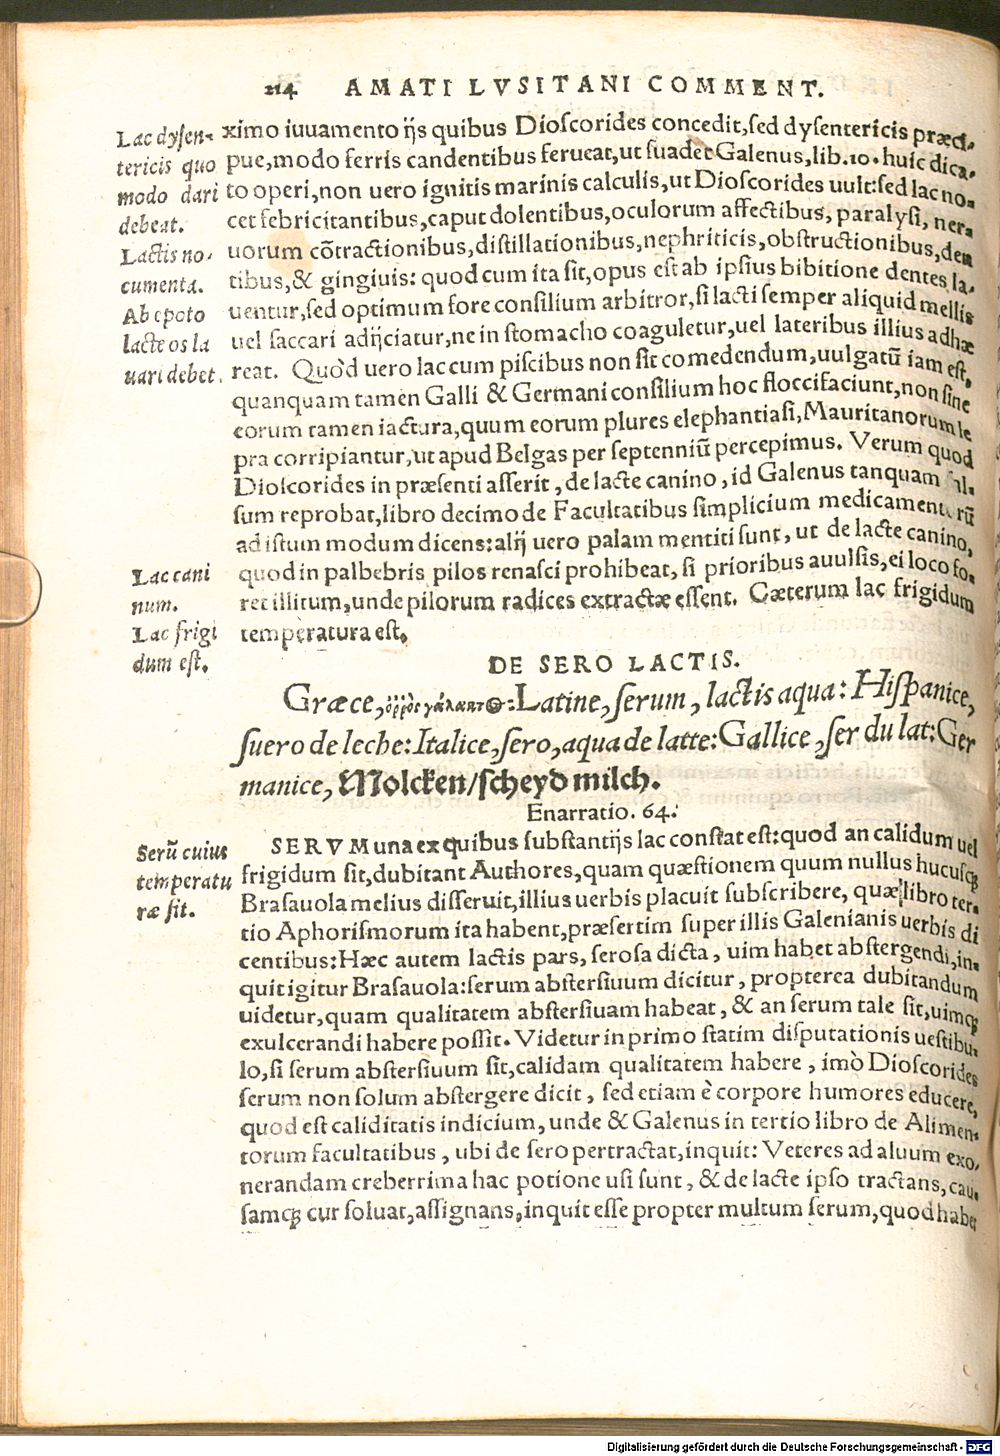 214 AMATI LVSITANI COMMENT.
Lac dysen-
tericis quo
modo dari
debeat.
Lactis no-
cumenta.
Ab epoto
lacte os la
uari debet.
ximo iuuamento ijs quibus Dioscorides concedit, sed dysentericis præci-
pue, modo ferris candentibus ferueat, ut suadet Galenus, lib. 10. huic dica-
to operi, non uero ignitis marinis calculis, ut Dioscorides uult: sed lac no-
cet febricitantibus, caput dolentibus, oculorum affectibus, paralysi, ner-
uorum cõtractionibus, distillationibus, nephriticis, obstructionibus, den
tibus, & gingiuis: quod cum ita sit, opus est ab ipsius bibitione dentes la-
uentur, sed optimum fore consilium arbitror, si lacti semper aliquid mellis
uel saccari adijciatur, ne in stomacho coaguletur, uel lateribus illius adhæ
reat. Quòd uero lac cum piscibus non sit comedendum, uulgatũ iam est,
quanquam tamen Galli & Germani consilium hoc floccifaciunt, non sine
eorum tamen iactura, quum eorum plures elephantiasi, Mauritanorum le
pra corripiantur, ut apud Belgas per septenniũ percepimus. Verum quod
Dioscorides in præsenti asserit, de lacte canino, id Galenus tanquam fal-
sum reprobat, libro decimo de Facultatibus simplicium medicamentorũ
ad istum modum dicens: alij uero palam mentiti sunt, ut de lacte canino,
quod in palbebris pilos renasci prohibeat, si prioribus auulsis, ei loco fo-
ret illitum, unde pilorum radices extractæ essent. Cæterum lac frigidum
temperatura est.
Lac cani
num.
Lac frigi
dum est.
DE SERO LACTIS.
Græce, ὀῤῥὸς γάλακτ@: Latine, serum, lactis aqua: Hispanice,
suero de leche: Italice, sero, aqua de latte: Gallice, ser du lat: Ger
manice, Molcken/scheyd milch.
Enarratio. 64.
Serũ cuius
temperatu
ræ sit.
SERVM una ex quibus substantijs lac constat est: quod an calidum uel
frigidum sit, dubitant Authores, quam quæstionem quum nullus hucusq;
Brasauola melius disseruit, illius uerbis placuit subscribere, quæ libro ter-
tio Aphorismorum ita habent, præsertim super illis Galenianis uerbis di
centibus: Hæc autem lactis pars, serosa dicta, uim habet abstergendi, in-
quit igitur Brasauola: serum abstersiuum dicitur, propterea dubitandum
uidetur, quam qualitatem abstersiuam habeat, & an serum tale sit, uimq;
exulcerandi habere possit. Videtur in primo statim disputationis uestibu-
lo, si serum abstersiuum sit, calidam qualitatem habere, imò Dioscorides
serum non solum abstergere dicit, sed etiam è corpore humores educere,
quod est caliditatis indicium, unde & Galenus in tertio libro de Alimen-
torum facultatibus, ubi de sero pertractat, inquit: Veteres ad aluum exo-
nerandam creberrima hac potione usi sunt, & de lacte ipso tractans, cau-
samq; cur soluat, assignans, inquit esse propter multum serum, quod habet
Digitalisierung gefördert durch die Deutsche Forschungsgemeinschaft - DFG